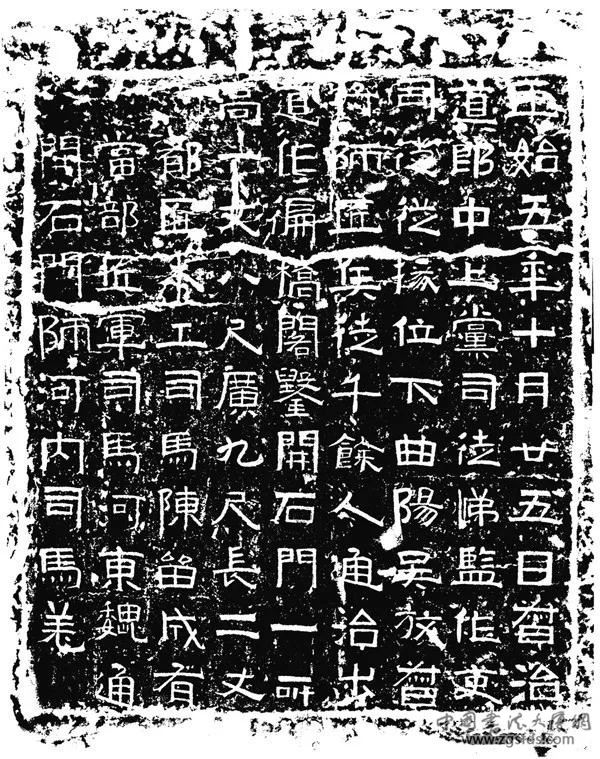 正始五年十月廿五日督治
道郎中上黨司徒悌監作吏
司徒從掾位下曲陽吳放督
將師匠兵徒千餘人通治步
道作偏橋閣鑿開石門一所
高一丈八尺廣九尺長二丈
都匠木工司馬陳留成有
當部匠軍司馬河東魏通
開石門師河內司馬羌
www.zgsfds.com